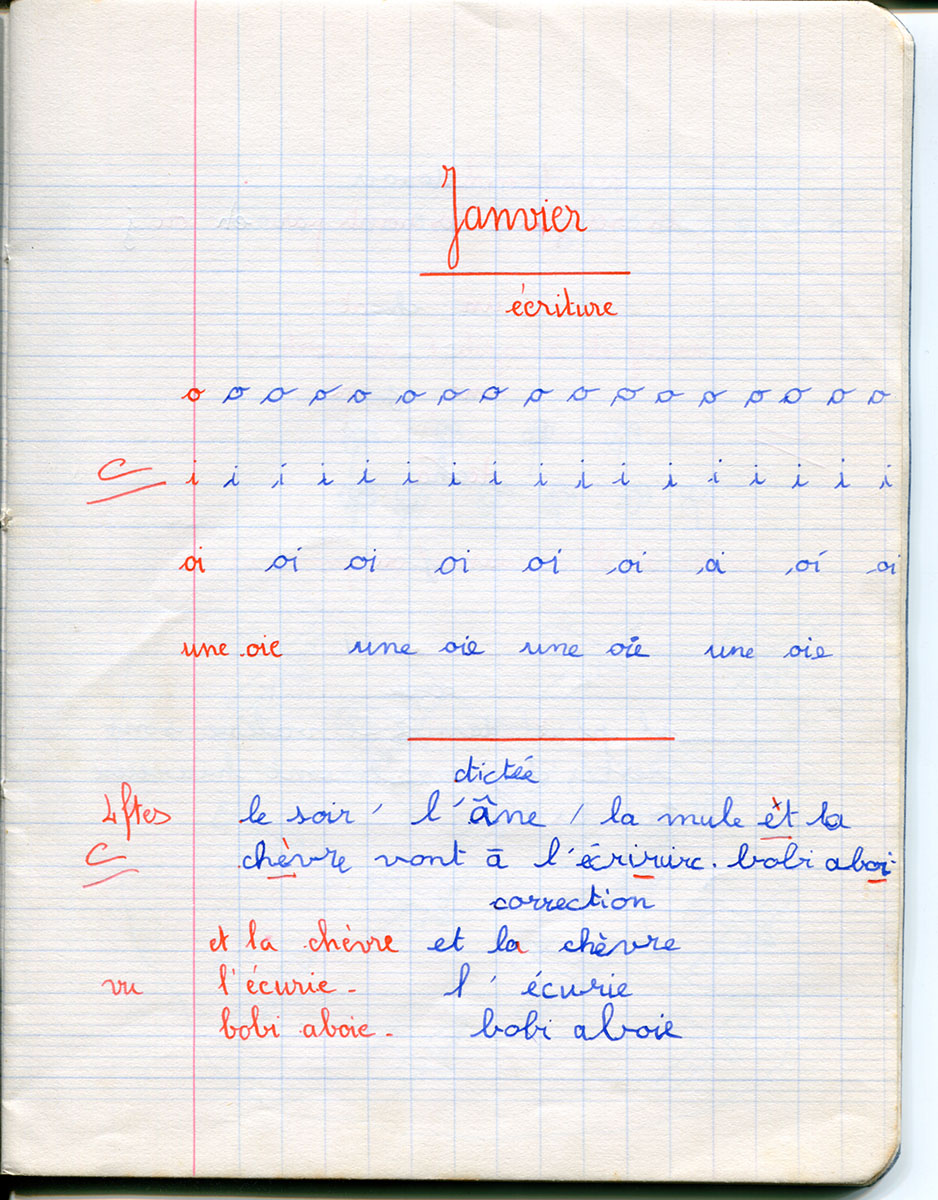 Janvier
écriture
o o o o o o o o o o o o o o o o o
C i i i i i i i i i i i i i i i i i
oi oi oi oi oi oi oi oi oi
une oie une oie une oie une oie
dictée
4 ftes le soir / l'âne / la mule èt la
C chèvre vont à l'écrirurc. bobi aboi
correction
et la chèvre et la chèvre
vu l'écurie - l'écurie
bobi aboie - bobi aboie